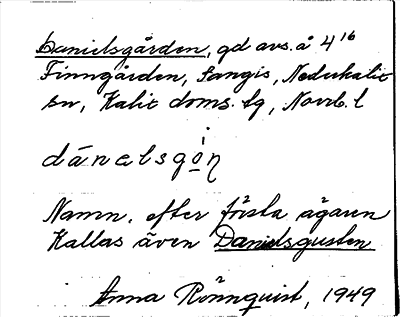 Danielsgården, gd avs. å 4¹⁶
Finngården, Sangis, Nederkalix
sn, Kalix doms. lg, Norrb. l
i
dánelsgo̲n
Namn. efter första ägaren
Kallas även Danielsgusten
Anna Rönnquist, 1949